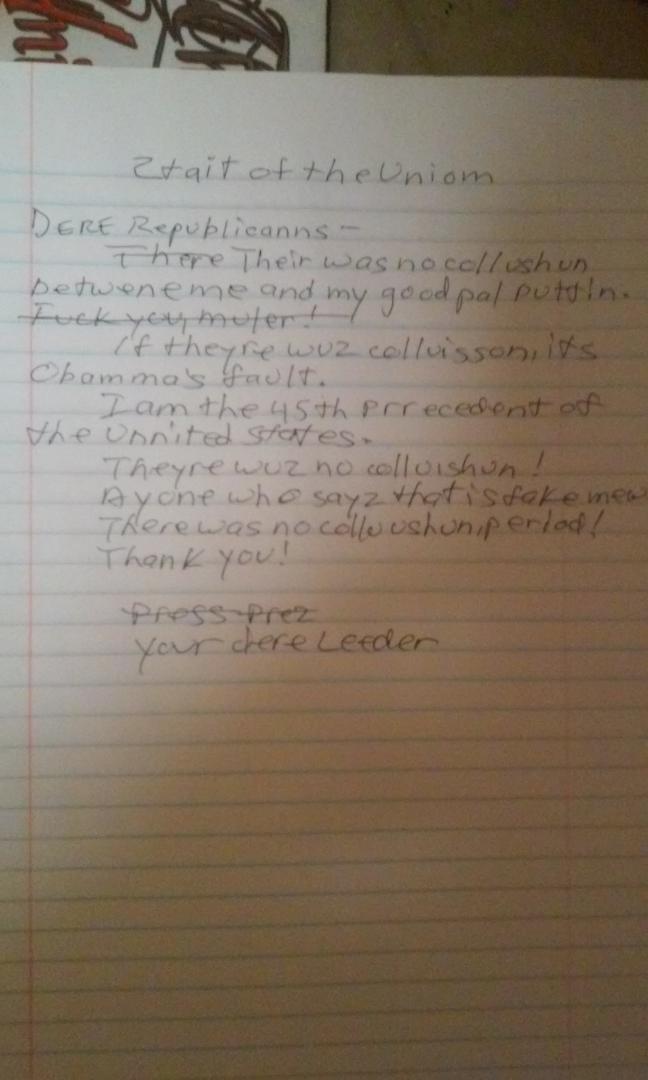 Ztait of the Uniom
DERE Republicanns -
There Their was no collushun
betwene me and my good pal puttin.
Fuck you, muler!
If theyre wuz colluisson, its
Obamma's fault.
I am the 45th prrecedent of
the Unn'ited states.
Theyre wuz no colluishun!
Ayone who sayz that is fake mew
There was no colluushun, period!
Thank you!
Press Prez
your dere Leeder